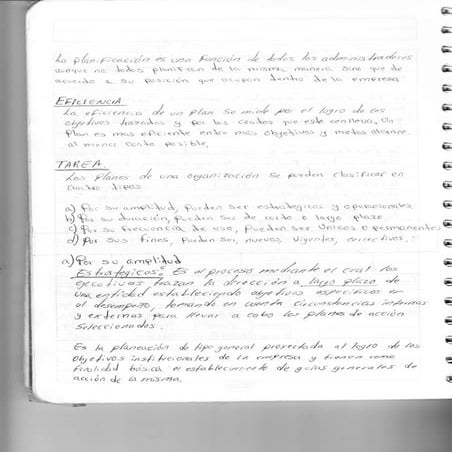 La planificación es una función de todos los administradores
aunque no todos planifican de la misma manera sino que de
acuerdo a su posición que ocupan dentro de la empresa
EFICIENCIA
La eficiencia de un plan se mide por el logro de los
objetivos trazados y por los costos que este conlleva. Un
Plan es mas eficiente entre mas objetivos y metas alcance
al menor costo posible.
TAREA
Los planes de una organización se pueden clasificar en
cuatro tipos
a) Por su amplitud, Pueden ser estrategicos y operacionales
b) Por su duración, Pueden ser de corto o largo plazo
c) Por su frecuencia de uso, Pueden ser Unicos o permanentes
d) Por sus fines, Pueden ser, nuevos, vigentes, correctivos.
a) Por su amplitud
Estrategicos: Es el proceso mediante el cual los
ejecutivos trazan la dirección a largo plazo de
una entidad estableciendo objetivos especificos en
el desempeño, tomando en cuenta circunstancias internas
y externas para llevar a cabo los planes de acción
seleccionados.
Es la planeación de tipo general proyectada al logro de los
objetivos institucionales de la empresa y tienen como
finalidad básica el establecimiento de guias generales de
acción de la misma.